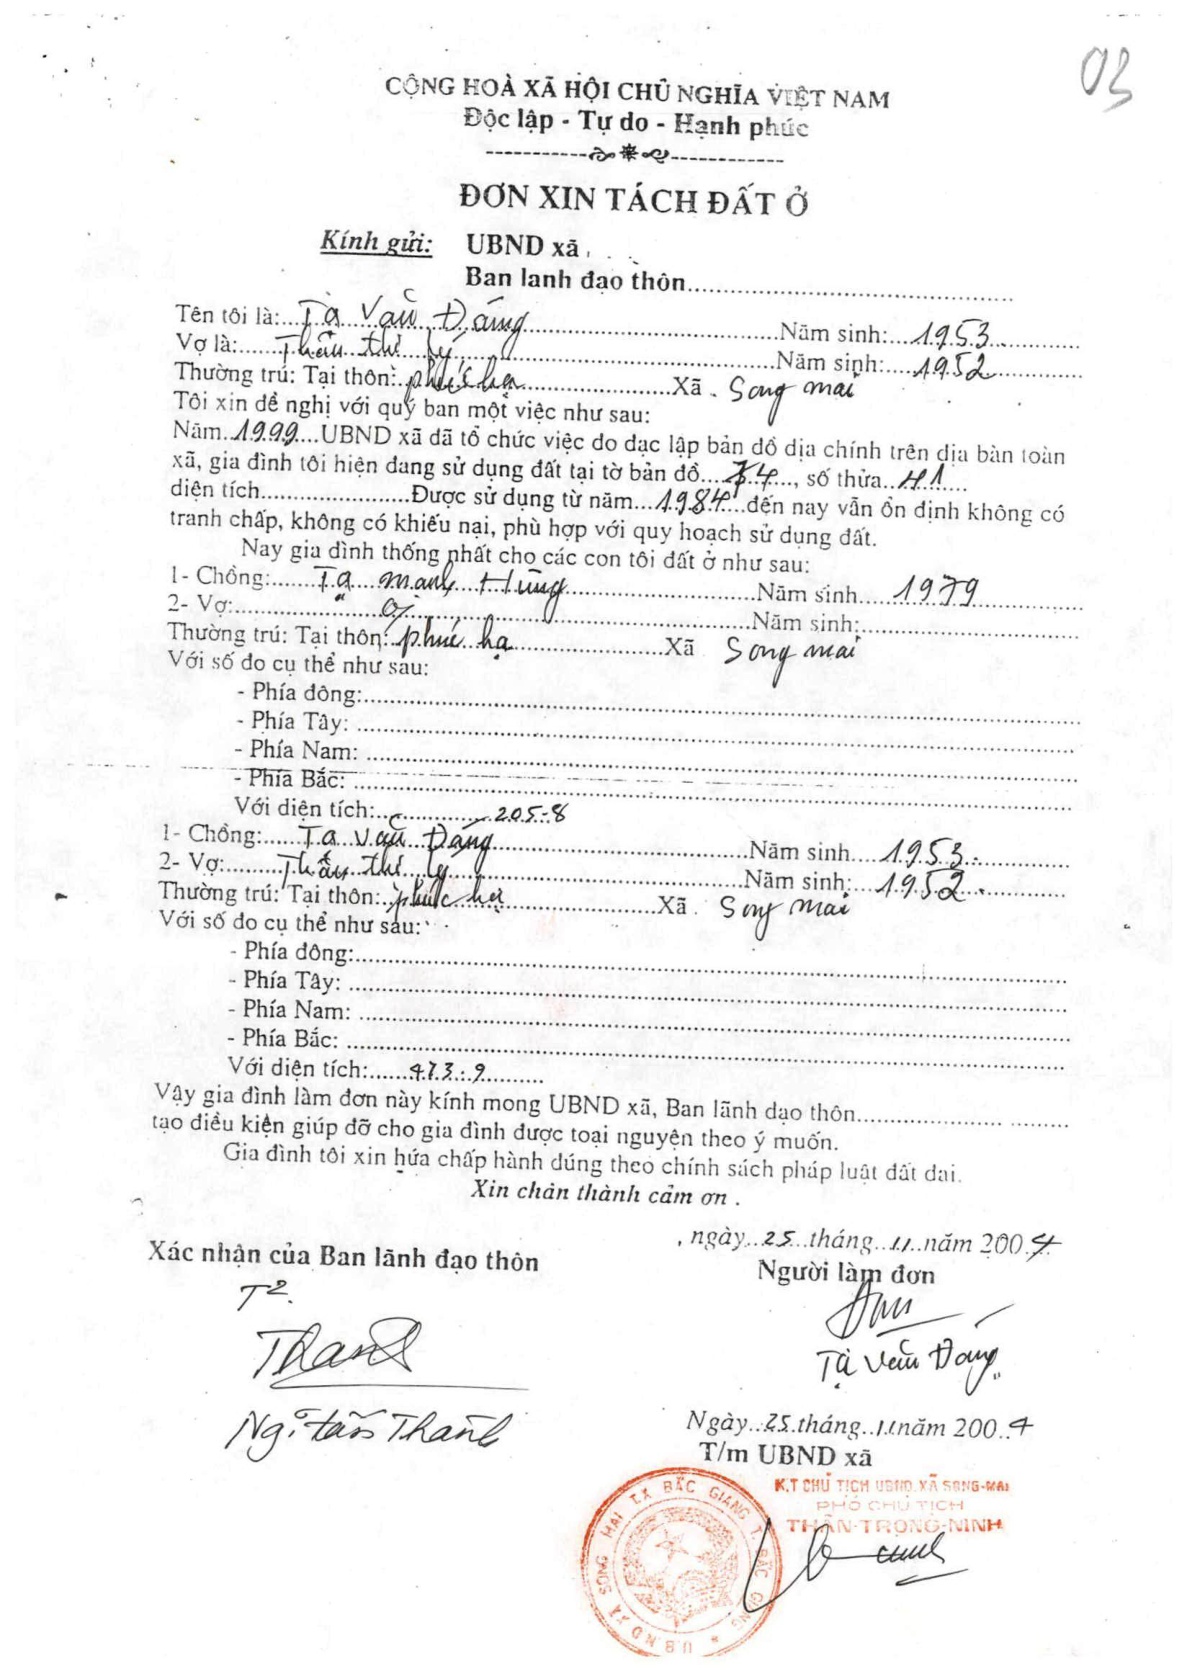 03
CỘNG HOÀ XÃ HỘI CHỦ NGHĨA VIỆT NAM
Độc lập - Tự do - Hạnh phúc
ĐƠN XIN TÁCH ĐẤT Ở
Kính gửi: UBND xã
Ban lanh đạo thôn
Tên tôi là: Tạ Văn Đáng Năm sinh: 1953
Vợ là: Thân thị Lý Năm sinh: 1952
Thường trú: Tại thôn: phúc hạ Xã Song mai
Tôi xin đề nghị với quý ban một việc như sau:
Năm 1999 UBND xã đã tổ chức việc đo đạc lập bản đồ địa chính trên địa bàn toàn
xã, gia đình tôi hiện đang sử dụng đất tại tờ bản đồ 74, số thửa H1
diện tích Được sử dụng từ năm 1984 đến nay vẫn ổn định không có
tranh chấp, không có khiếu nại, phù hợp với quy hoạch sử dụng đất.
Nay gia đình thống nhất cho các con tôi đất ở như sau:
1- Chồng: Tạ mạnh Hùng Năm sinh 1979
2- Vợ: Năm sinh:
Thường trú: Tại thôn: phúc hạ Xã Song mai
Với số đo cụ thể như sau:
- Phía đông:
- Phía Tây:
- Phía Nam:
- Phía Bắc:
Với diện tích: 205-8
1- Chồng: Tạ Văn Đáng Năm sinh 1953.
2- Vợ: Thân thị Lý Năm sinh: 1952.
Thường trú: Tại thôn: phúc hạ Xã Song mai
Với số đo cụ thể như sau:
- Phía đông:
- Phía Tây:
- Phía Nam:
- Phía Bắc:
Với diện tích: 473.9
Vậy gia đình làm đơn này kính mong UBND xã, Ban lãnh đạo thôn
tạo điều kiện giúp đỡ cho gia đình được toại nguyện theo ý muốn.
Gia đình tôi xin hứa chấp hành đúng theo chính sách pháp luật đất đai.
Xin chân thành cảm ơn .
, ngày 25 tháng 11 năm 2004
Xác nhận của Ban lãnh đạo thôn
Người làm đơn
T2.
Thanh
Tạ Văn Đáng
Ngày 25 tháng 11 năm 2004
T/m UBND xã
K.T CHỦ TỊCH UBND XÃ SONG-MAI
PHÓ CHỦ TỊCH
THÂN-TRỌNG-NINH
U.B.N.D XÃ SONG MAI T.X BẮC GIANG T. BẮC GIANG